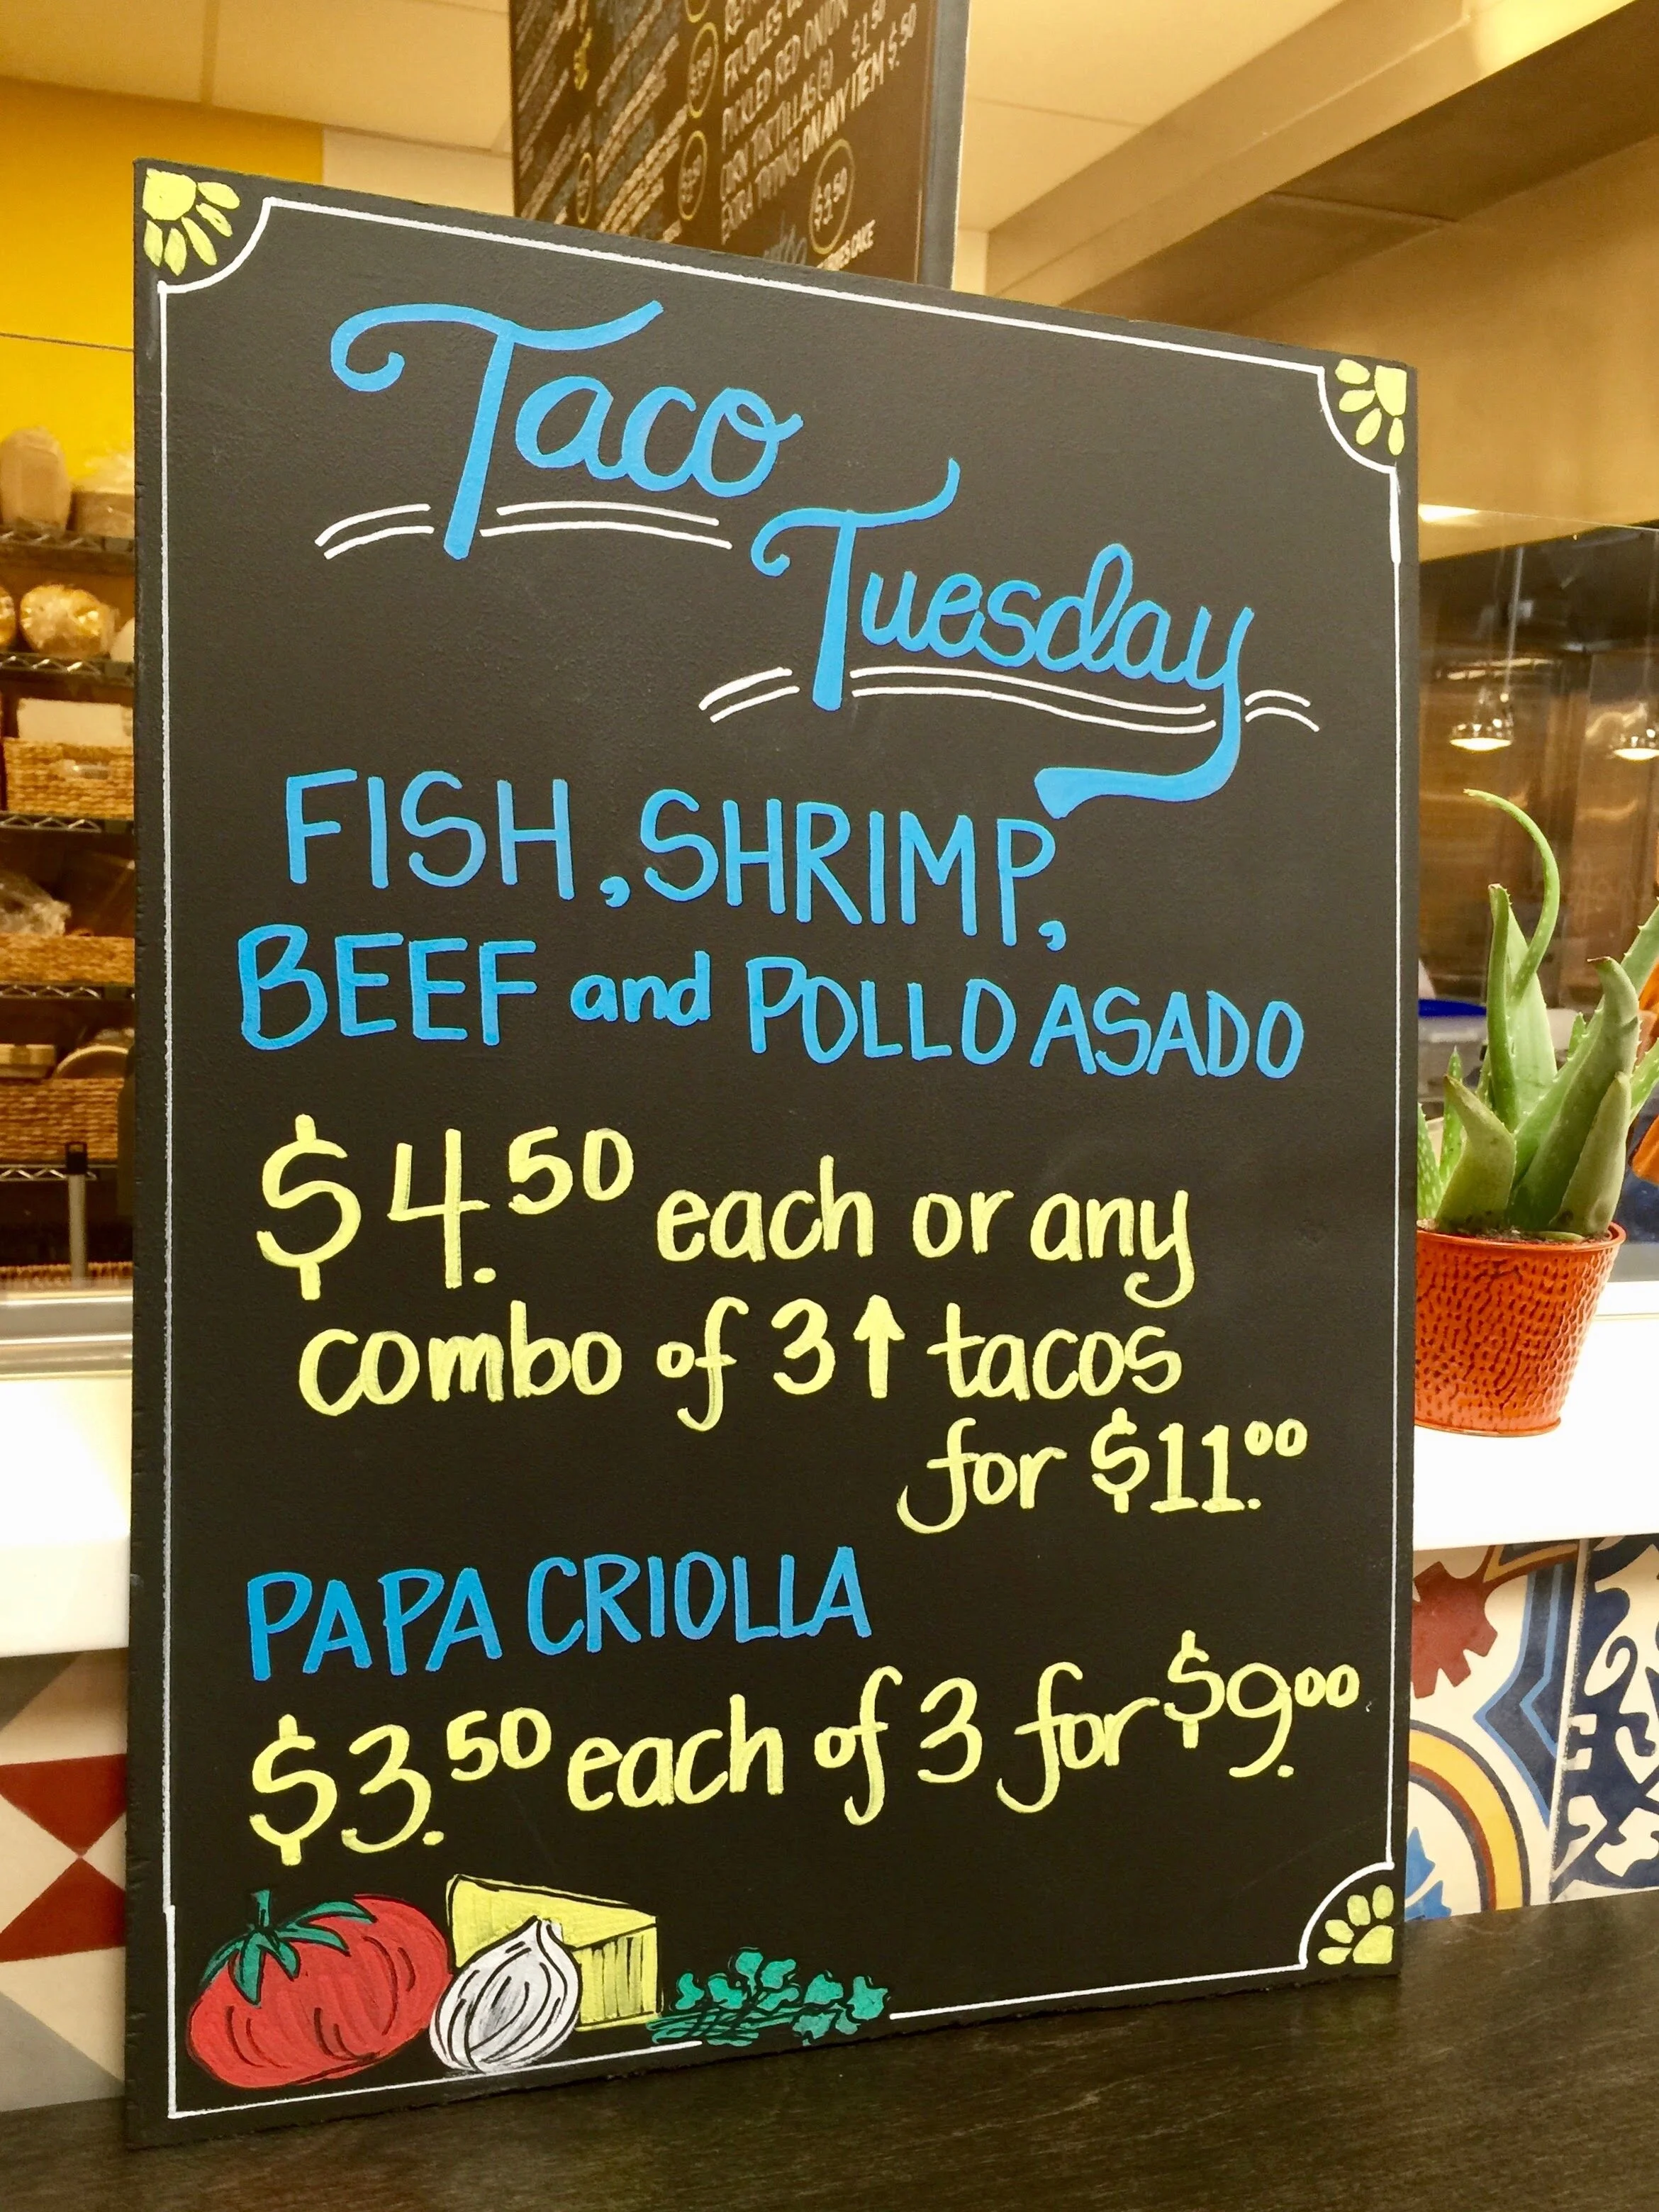 FRIJOLES
PICKLED RED ONION $1.50
CORN TORTILLAS (3)
EXTRA TOPPING ON ANY ITEM $.50
$3.50
CAKE
Taco
Tuesday
FISH, SHRIMP,
BEEF and POLLO ASADO
$4.50 each or any
combo of 3↑ tacos
for $11.00
PAPA CRIOLLA
$3.50 each of 3 for $9.00